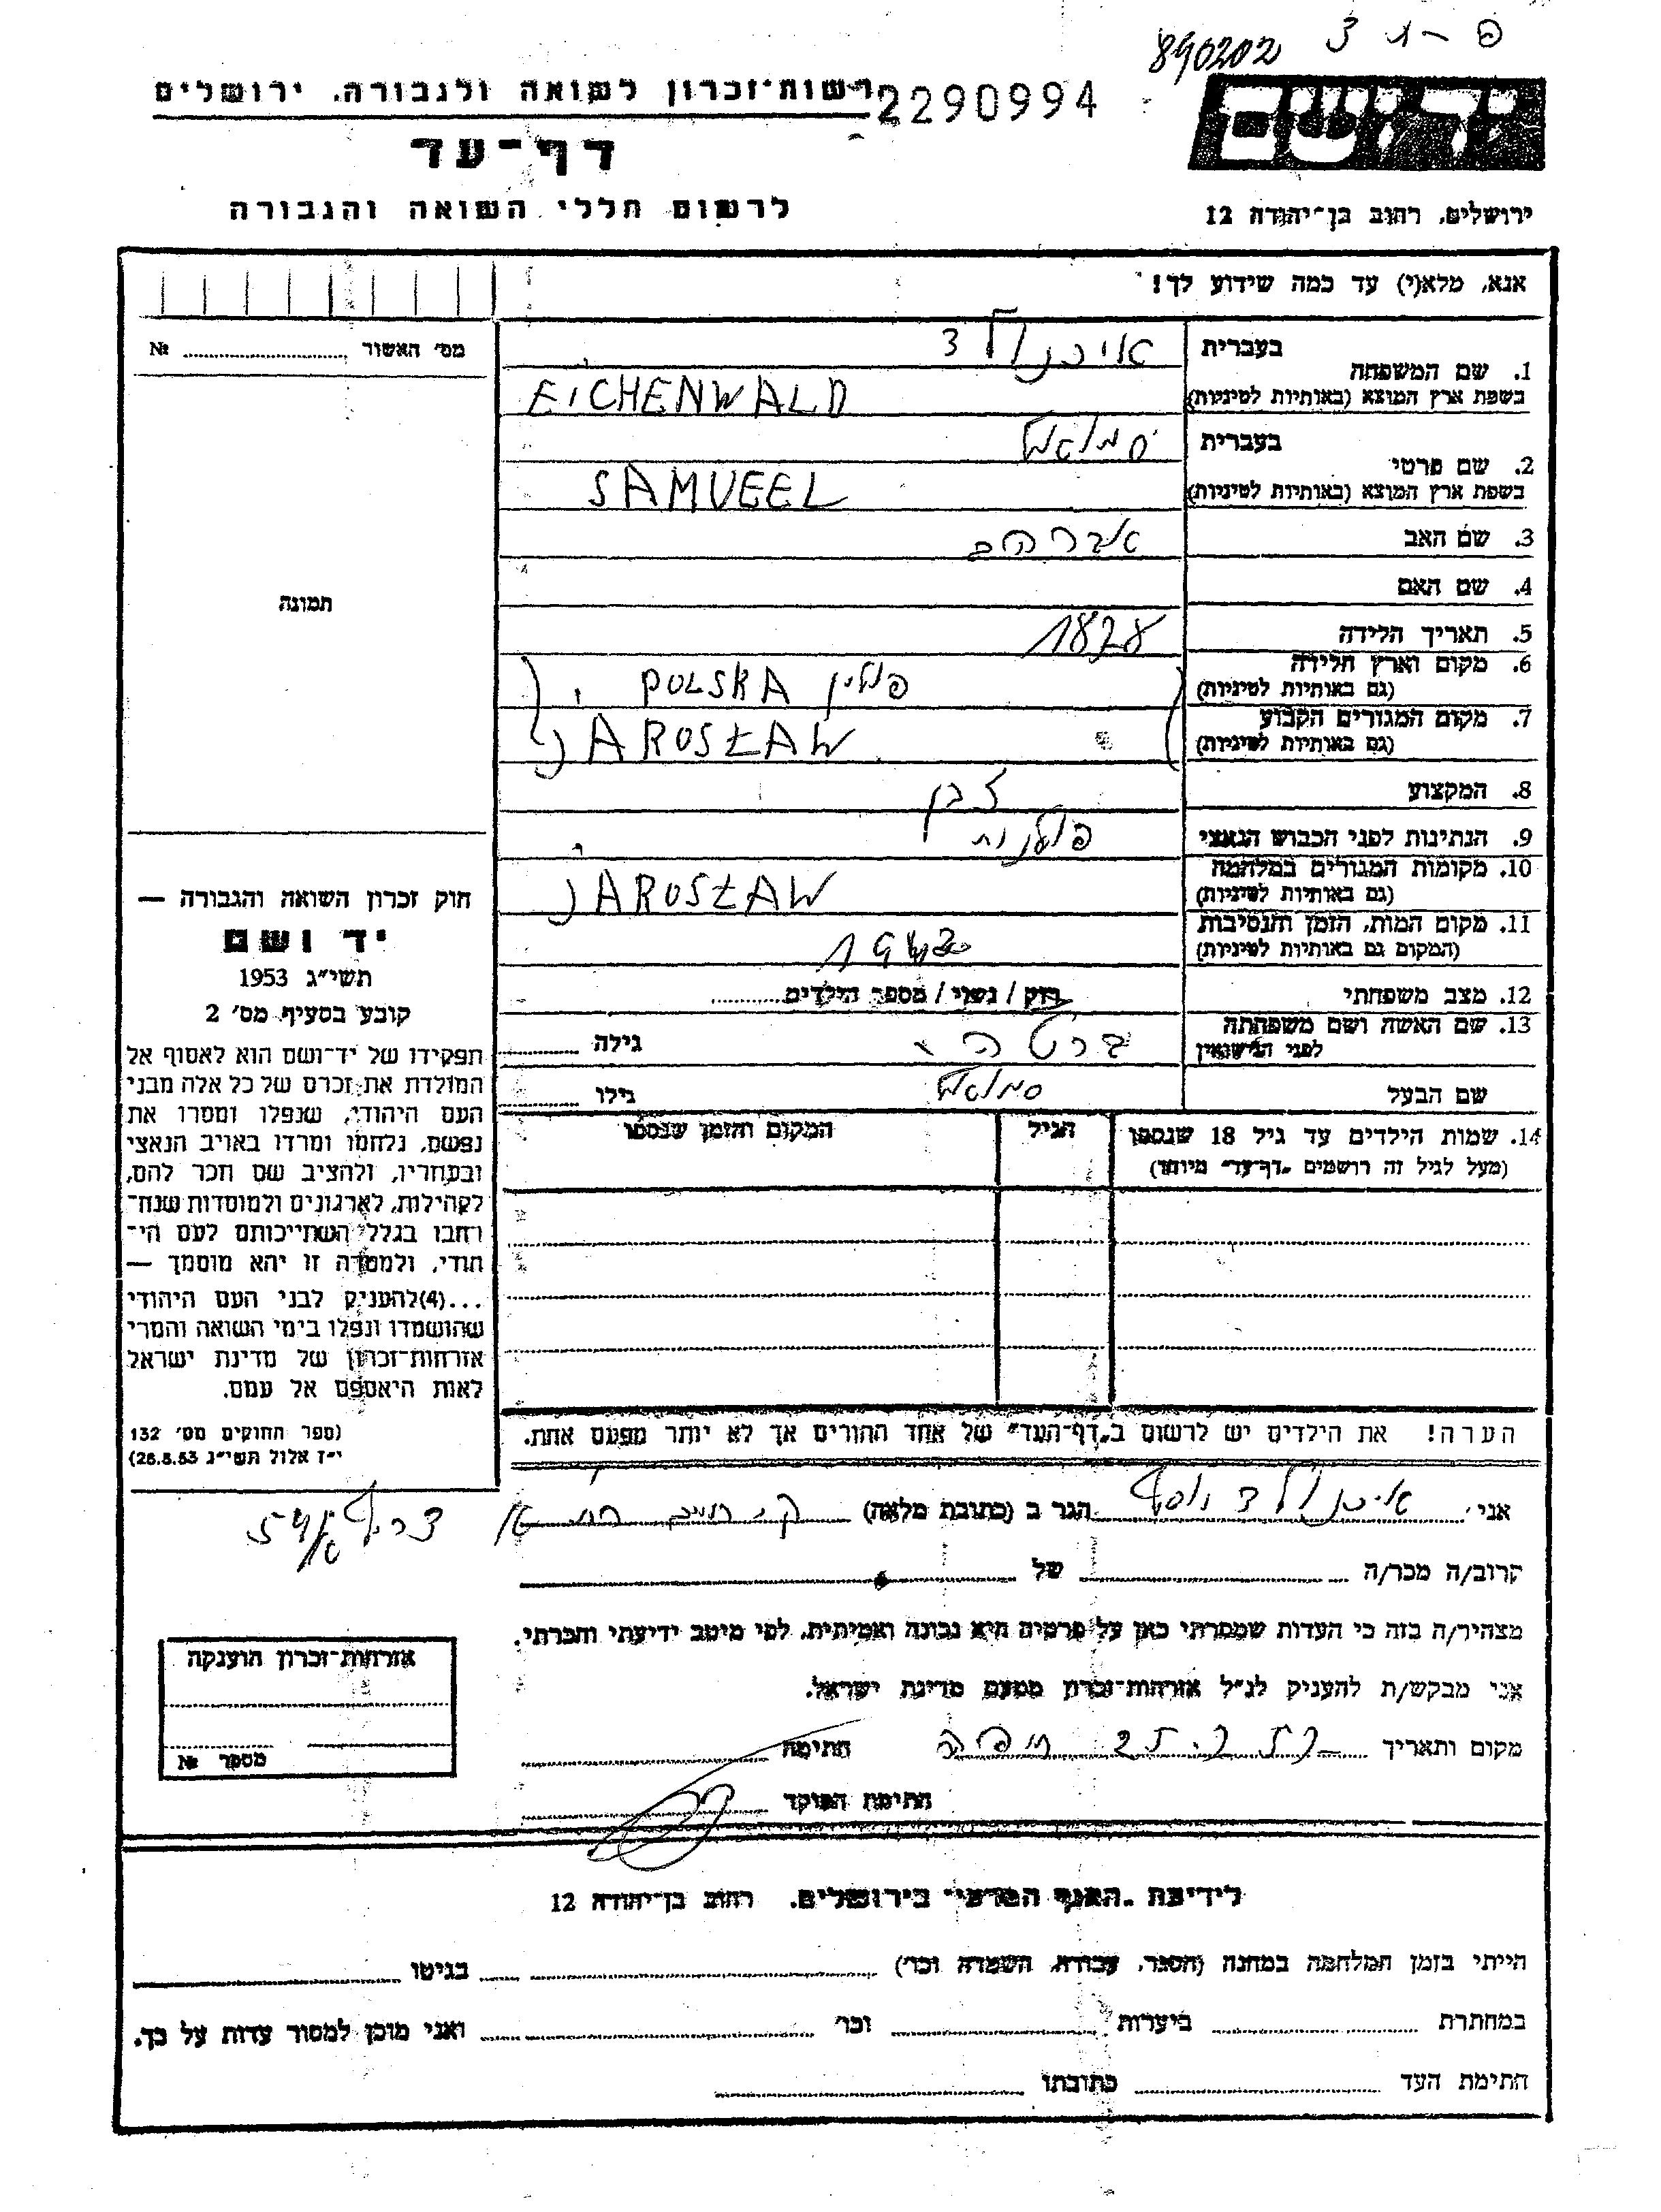 פ-ת 3
890202
רשות־זכרון לשואה ולגבורה, ירושלים
2290994
דף־עד
יד ושם
לרשום חללי השואה והגבורה
ירושלים, רחוב בן־יהודה 12
אנא, מלא(י) עד כמה שידוע לך!
מס׳ האשור № 
1. שם המשפחה
בעברית איכנולד
בשפת ארץ המוצא (באותיות לטיניות) EICHENWALD
2. שם פרטי
בעברית סמואל
בשפת ארץ המוצא (באותיות לטיניות) SAMUEEL
3. שם האב אברהם
4. שם האם
תמונה
5. תאריך הלידה 1878
6. מקום וארץ הלידה
(גם באותיות לטיניות) פולין POLSKA
7. מקום המגורים הקבוע
(גם באותיות לטיניות) JAROSŁAW
8. המקצוע
9. הנתינות לפני הכבוש הנאצי פולנית
10. מקומות המגורים במלחמה
(גם באותיות לטיניות) JAROSŁAW
11. מקום המות, הזמן והנסיבות
(המקום גם באותיות לטיניות) 1942
12. מצב משפחתי רוק / נשוי / מספר הילדים
13. שם האשה ושם משפחתה
לפני הנישואין ברטה גילה
שם הבעל סמואל גילו
14. שמות הילדים עד גיל 18 שנספו
(מעל לגיל זה רושמים „דף־עד״ מיוחד)
הגיל
המקום והזמן שנספו
חוק זכרון השואה והגבורה —
יד ושם
תשי״ג 1953
קובע בסעיף מס׳ 2
תפקידו של יד־ושם הוא לאסוף אל
המולדת את זכרם של כל אלה מבני
העם היהודי, שנפלו ומסרו את
נפשם, נלחמו ומרדו באויב הנאצי
ובעוזריו, ולהציב שם וזכר להם,
לקהילות, לארגונים ולמוסדות שנח־
רבו בגלל השתייכותם לעם הי־
הודי, ולמטרה זו יהא מוסמך —
...(4) להעניק לבני העם היהודי
שהושמדו ונפלו בימי השואה והמרי
אזרחות־זכרון של מדינת ישראל
לאות היאספם אל עמם.
(ספר החוקים מס׳ 132
י״ז אלול תשי״ג 28.8.53)
הערה! את הילדים יש לרשום ב„דף־העד״ של אחד ההורים אך לא יותר מפעם אחת.
אני, איכנולד יוסף הגר ב (כתובת מלאה) קרית
קרוב/ה מכר/ה של
מצהיר/ה בזה כי העדות שמסרתי כאן על פרטיה היא נכונה ואמיתית, לפי מיטב ידיעתי והכרתי.
אני מבקש/ת להעניק לנ״ל אזרחות־זכרון מטעם מדינת ישראל.
מקום ותאריך חיפה חתימה
חתימת הפוקד
אזרחות־זכרון הוענקה
מספר №
לידיעת „האגף המדעי״ בירושלים, רחוב בן־יהודה 12
הייתי בזמן המלחמה במחנה (הסגר, עבודה, השמדה וכו׳) בגיטו
במחתרת ביערות וכו׳ ואני מוכן למסור עדות על כך.
חתימת העד כתובתו